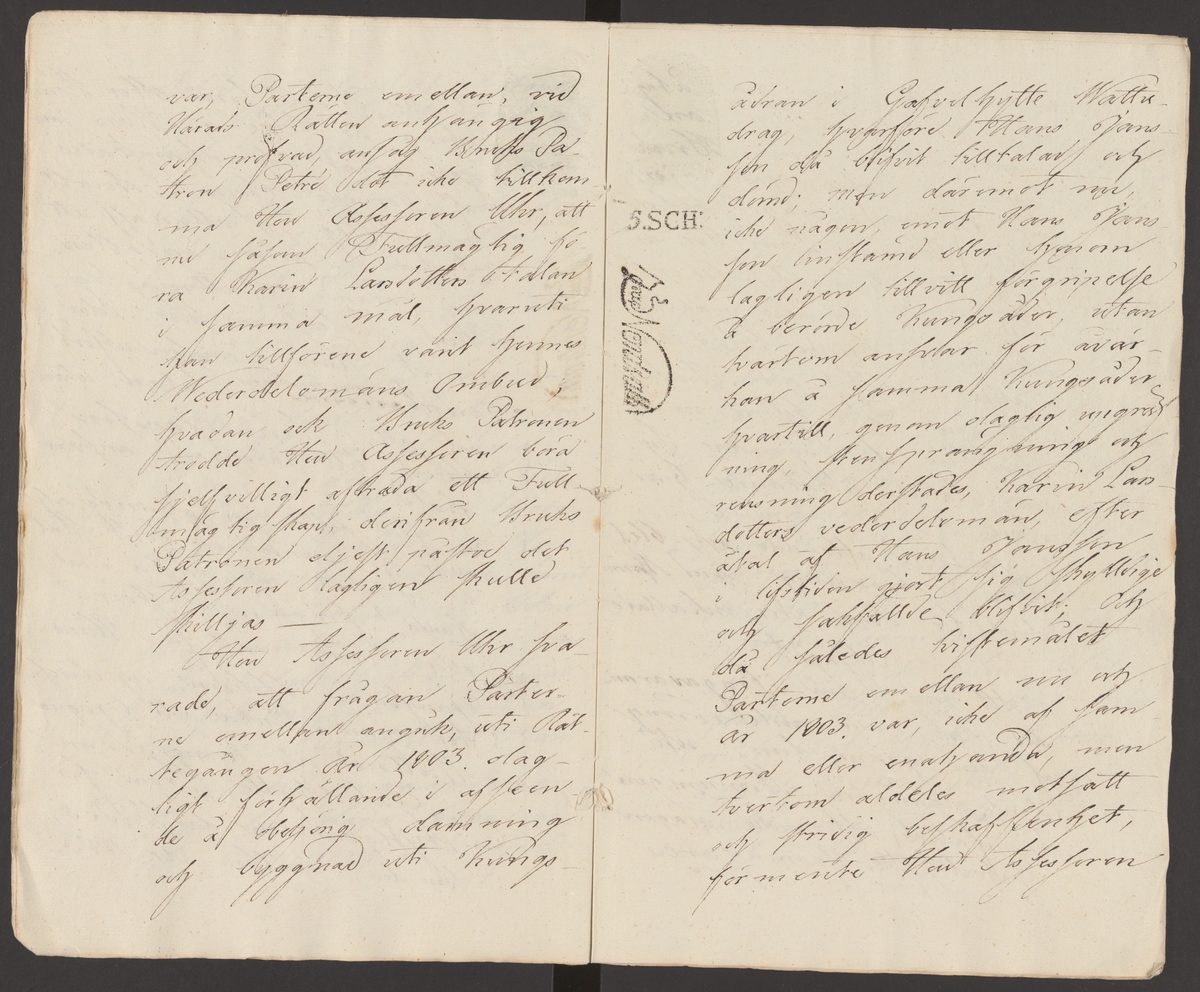 var, Parterne emellan, vid
Härads Rätten anhängig
och pröfvad, ansåg Bruks Pa-
tron Petré det icke tillkom
ma Herr Assessoren Uhr, att
nu såsom Fullmägtig fö
ra Karin Larsdotters talan
i samma mål, hvaruti
han tillförene varit hennes
Wederdelomans Ombud;
hvadan ock Bruks Patronen
trodde Herr Assessoren böra
sjelfvilligt afträda ett Full
mägtigskap, derifrån Bruks
Patronen eljest påstod det
Assessoren lagligen skulle
skiljas —
Herr Assessoren Uhr sva-
rade, att frågan Parter-
ne emellan angick, uti Rät-
tegången år 1803. olag-
ligt förhållande i afseen
de å obehörig damning
och byggnad uti Kungs-
ådran i Gafvelhytte Wattu-
drag, hvarföre Hans Jans-
son då blifvit tilltalad och
dömd; men däremot nu,
icke någon, emot Hans Jans-
son instämd eller honom
lagligen tillvitt förgripelse
å berörde Kungsåder, utan
tvärtom ansvar för åvär-
kan å samma Kungsåder
hvartill, genom olaglig
ning, stensprängning och
rensning derstädes, Karin Lars-
dotters vederdeloman, efter
åtal af Hans Jansson
i lifstiden gjort sig skyldige
och sakfällde blifvit; och
då således tvistemålet
Parterne emellan nu och
år 1803. var, icke af sam-
ma eller enahanda, men
tvertom aldeles motsatt
och stridig beskaffenhet,
förmente Herr Assessoren
5.SCH: